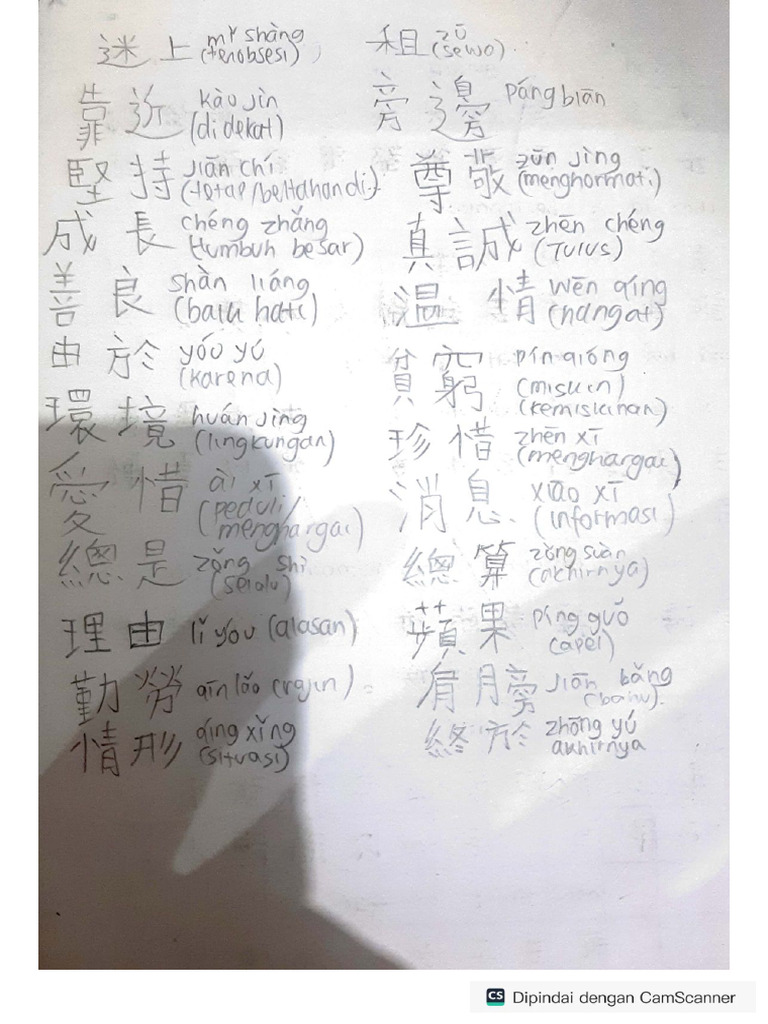 迷上 mí shàng (terobsesi), 租 zū (sewa).
靠近 kào jìn (didekat) 旁邊 páng biān
堅持 jiān chí (tetap/bertahan di) 尊敬 zūn jìng (menghormati)
成長 chéng zhǎng (tumbuh besar) 真誠 zhēn chéng (Tulus)
善良 shàn liáng (baik hati) 溫情 wēn qíng (hangat)
由於 yóu yú (karena) 貧窮 pín qióng (miskin) (kemiskinan)
環境 huán jìng (lingkungan) 珍惜 zhēn xī (menghargai)
愛惜 ài xī (peduli/menghargai) 消息 xiāo xī (informasi)
總是 zǒng shì (selalu) 總算 zǒng suàn (akhirnya)
理由 lǐ yóu (alasan) 蘋果 píng guǒ (apel)
勤勞 qīn láo (rajin) 肩膀 jiān bǎng (bahu).
情形 qíng xǐng (situasi) 終於 zhōng yú akhirnya
CS Dipindai dengan CamScanner